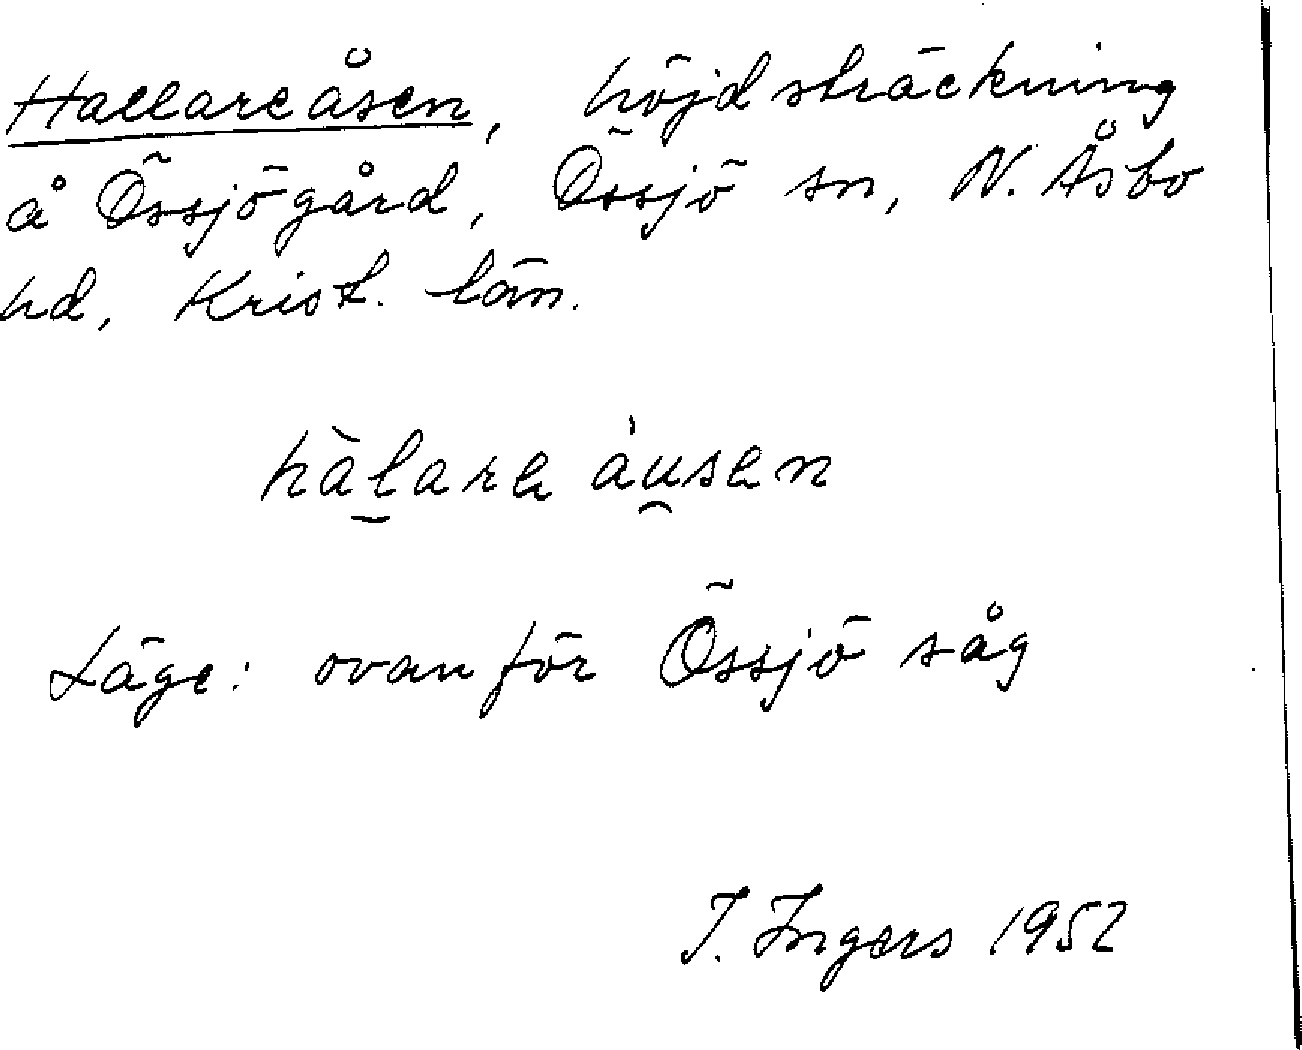 Hallareåsen, höjdsträckning
å Össjögård, Össjö sn, N. Åsbo
hd, Krist. län.
hàlare ausen
Läge: ovanför Össjö såg
I. Ingers 1952